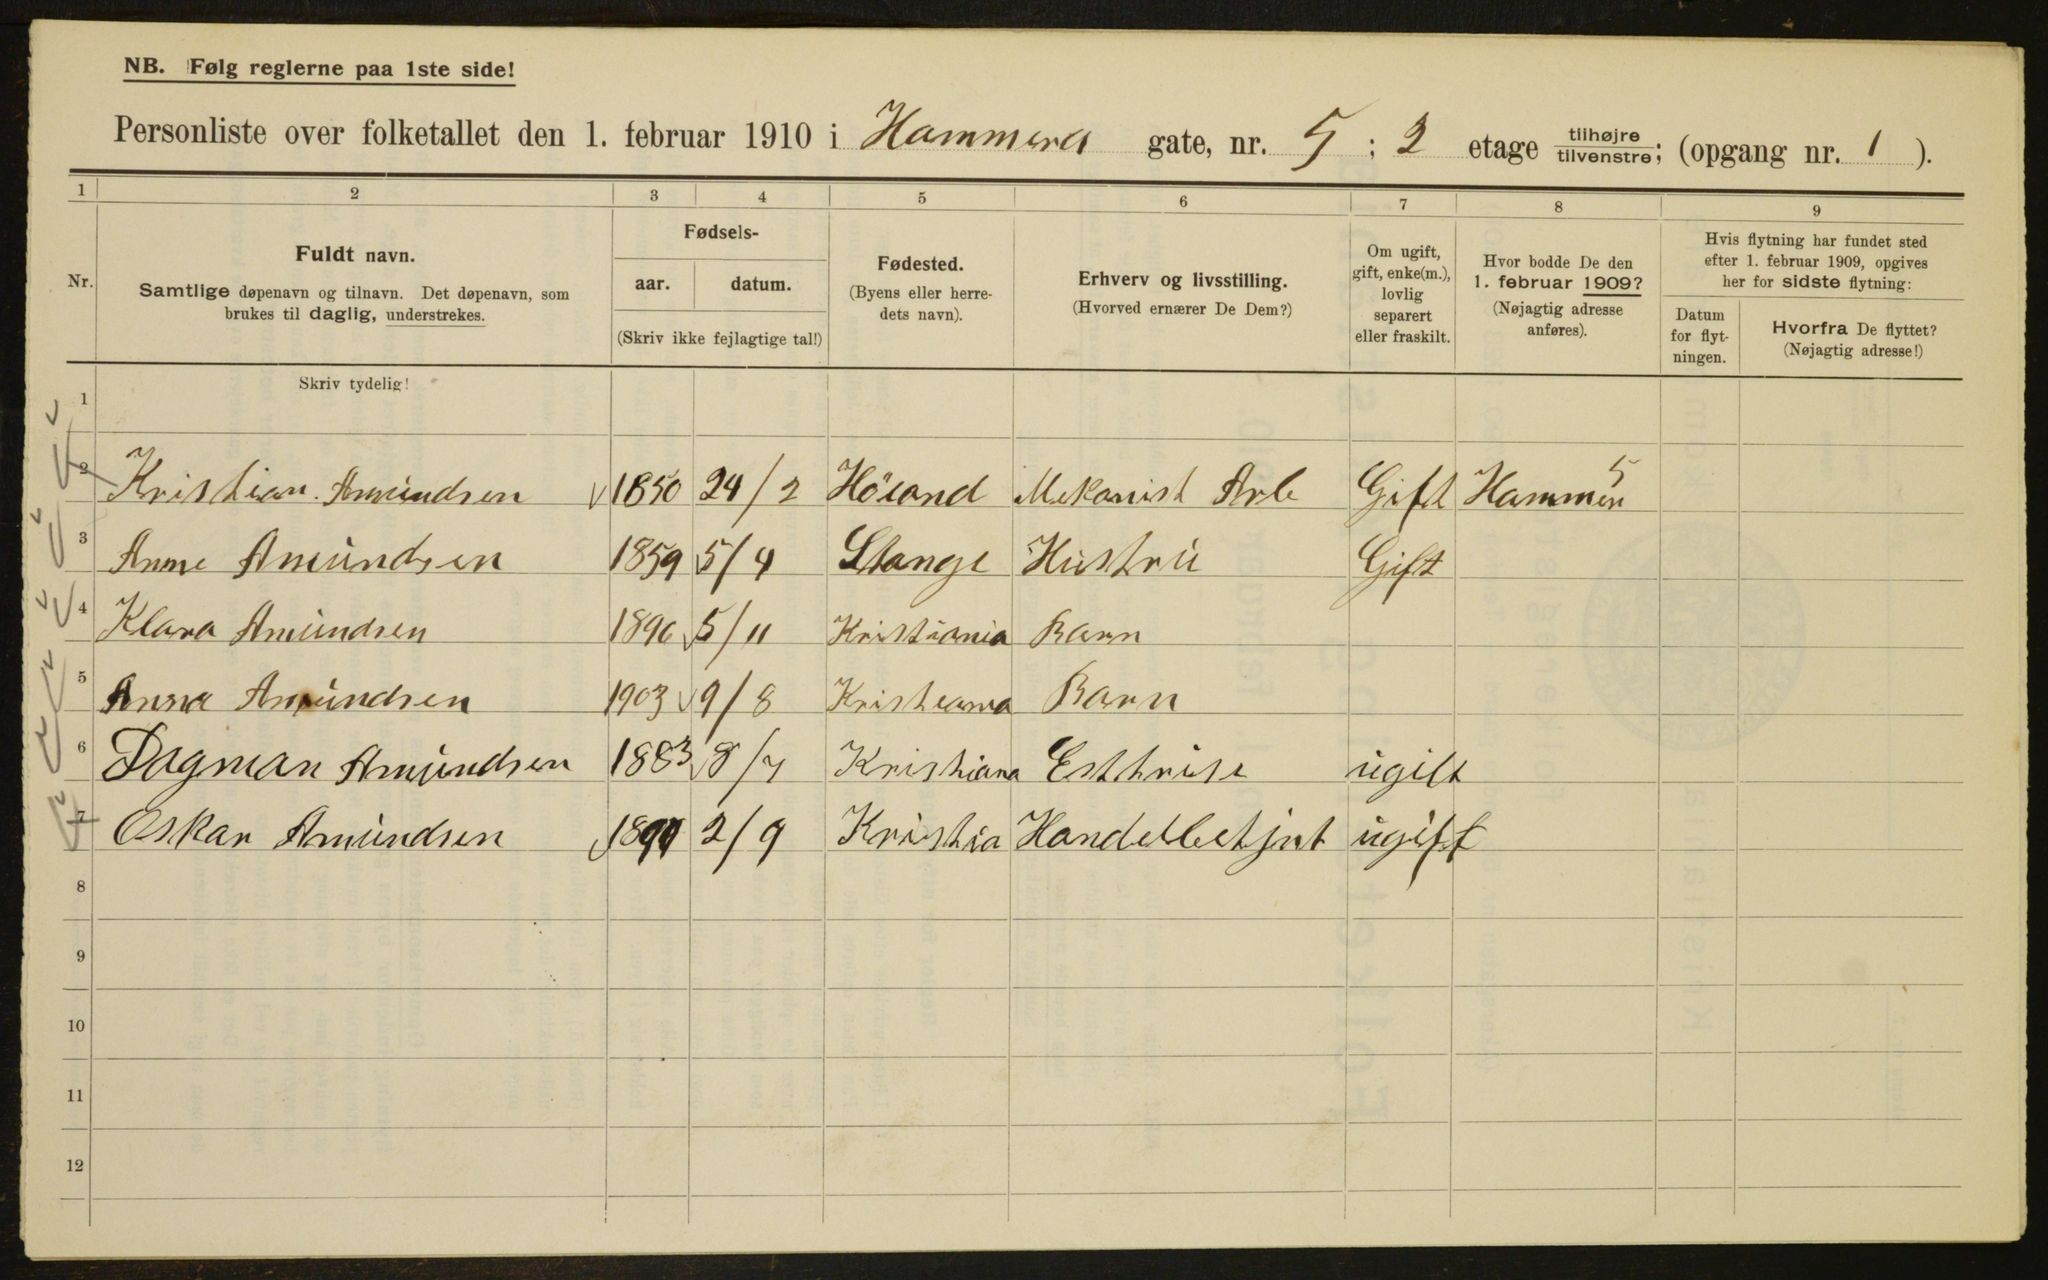 NB. Følg reglerne paa 1ste side!
Personliste over folketallet den 1. februar 1910 i Hammers gate, nr. 5 ; 2 etage tilhøjre/tilvenstre; (opgang nr. 1 ).
1 2 3 4 5 6 7 8 9
Nr.
Fuldt navn.
Samtlige døpenavn og tilnavn. Det døpenavn, som
brukes til daglig, understrekes.
Fødsels-
aar. datum.
(Skriv ikke fejlagtige tal!)
Fødested.
(Byens eller herre-
dets navn).
Erhverv og livsstilling.
(Hvorved ernærer De Dem?)
Om ugift,
gift, enke(m.),
lovlig
separert
eller fraskilt.
Hvor bodde De den
1. februar 1909?
(Nøjagtig adresse
anføres).
Hvis flytning har fundet sted
efter 1. februar 1909, opgives
her for sidste flytning:
Datum
for flyt-
ningen.
Hvorfra De flyttet?
(Nøjagtig adresse!)
Skriv tydelig!
1
2 Kristian Amundsen 1850 24/2 Höland Mekanisk Arb Gift Hammers 5
3 Anne Amundsen 1859 5/4 Stange Hustru Gift
4 Klara Amundsen 1896 5/11 Kristiania Barn
5 Anna Amundsen 1903 9/8 Kristiania Barn
6 Dagmar Amundsen 1883 8/7 Kristiana ugift
7 Oskar Amundsen 2/9 Kristia Handelbetjnt ugift
8
9
10
11
12